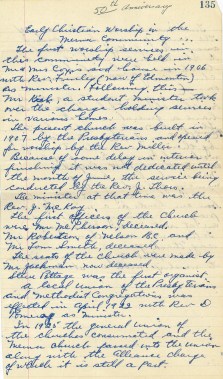 50th Anniversary
135
Early Christian Worship in the
Community
The first worship services in
this community were held in
Mr & Mrs home in 1906
with Rev. (now of Edmonton)
as minister. Following this
Mr a student minister took
over the charge holding services
in various homes.
The present church was built in
1907 by the Presbyterians and opened
for worship by the Rev Miller.
Because of some delay in interior
finishing it was not dedicated until
the month of June, the service being
conducted by the Rev. J.
The minister at that time was the
Rev. J. McKay
The first officers of the Church
were Mr McPherson, deceased,
Mr Robertson of Nelson B.C. and
Mr Tom Smith, deceased.
The seats of the Church were made by
Mr now deceased.
Mrs was the first organist.
A local Union of the Presbyterians
and Methodist Congregations was
effected in April 1922 with Rev. D
as minister.
In 1925 the general Union of
the churches consummated and the
church passed into the Union
along with the Alliance charge
of which it is still a part.